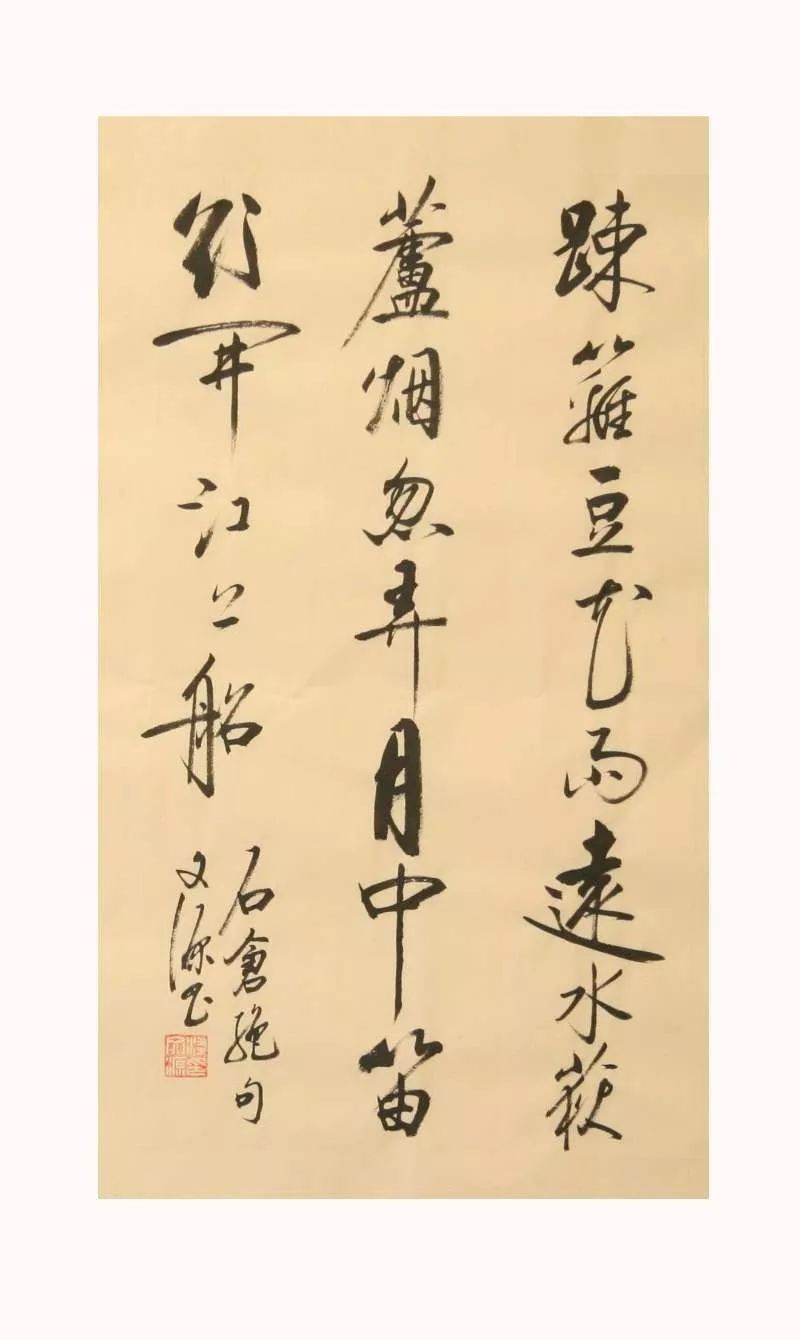 踈籬豆花雨遠水荻
蘆烟忽弄月中笛
欲開江上船
石倉絶句
文源書